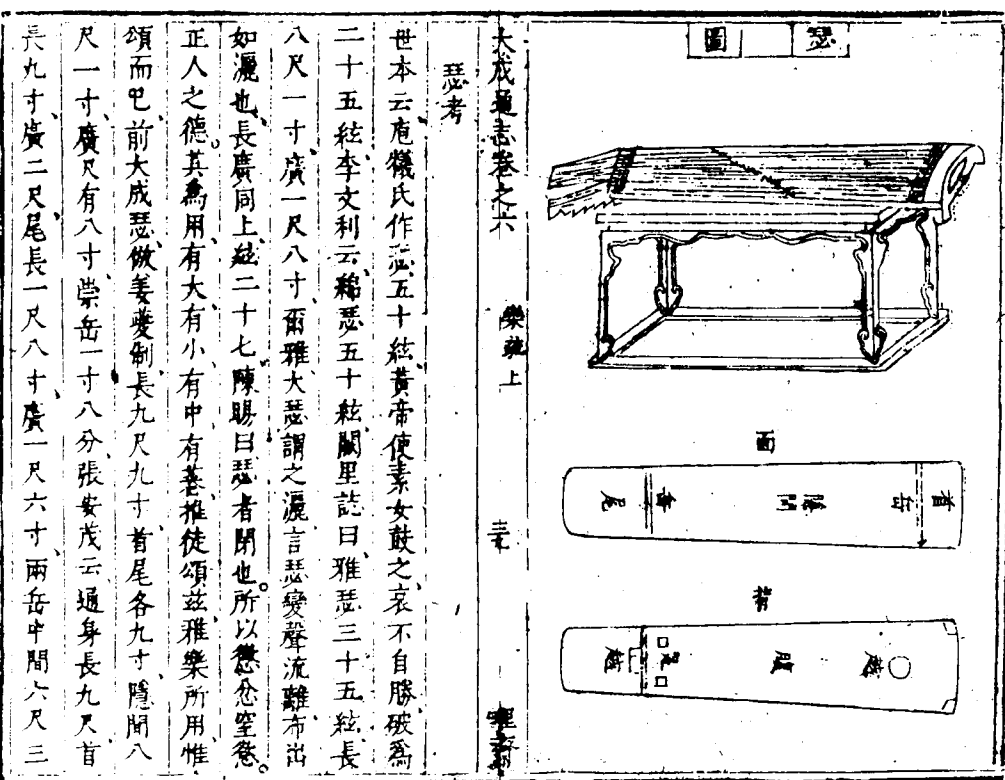 瑟圖
面
首岳 隱間 岳尾
背
越 腹 足 越
大成通志卷之六 樂疏上
瑟考
世本云庖犧氏作瑟五十絃黃帝使素女鼓之哀不自勝破爲
二十五絃李文利云錦瑟五十絃闕里誌曰雅瑟三十五絃長
八尺一寸廣一尺八寸爾雅大瑟謂之灑言瑟變聲流離布出
如灑也長廣同上絃二十七陳暘曰瑟者閉也所以懲忿窒慾
正人之德其爲用有大有小有中有蕃推徒頌兹雅樂所用惟
頌而已前大成瑟倣姜夔制長九尺九寸首尾各九寸隱間八
尺一寸廣尺有八寸崇岳一寸八分張安茂云通身長九尺首
長九寸廣二尺尾長一尺八寸廣一尺六寸兩岳中間六尺三